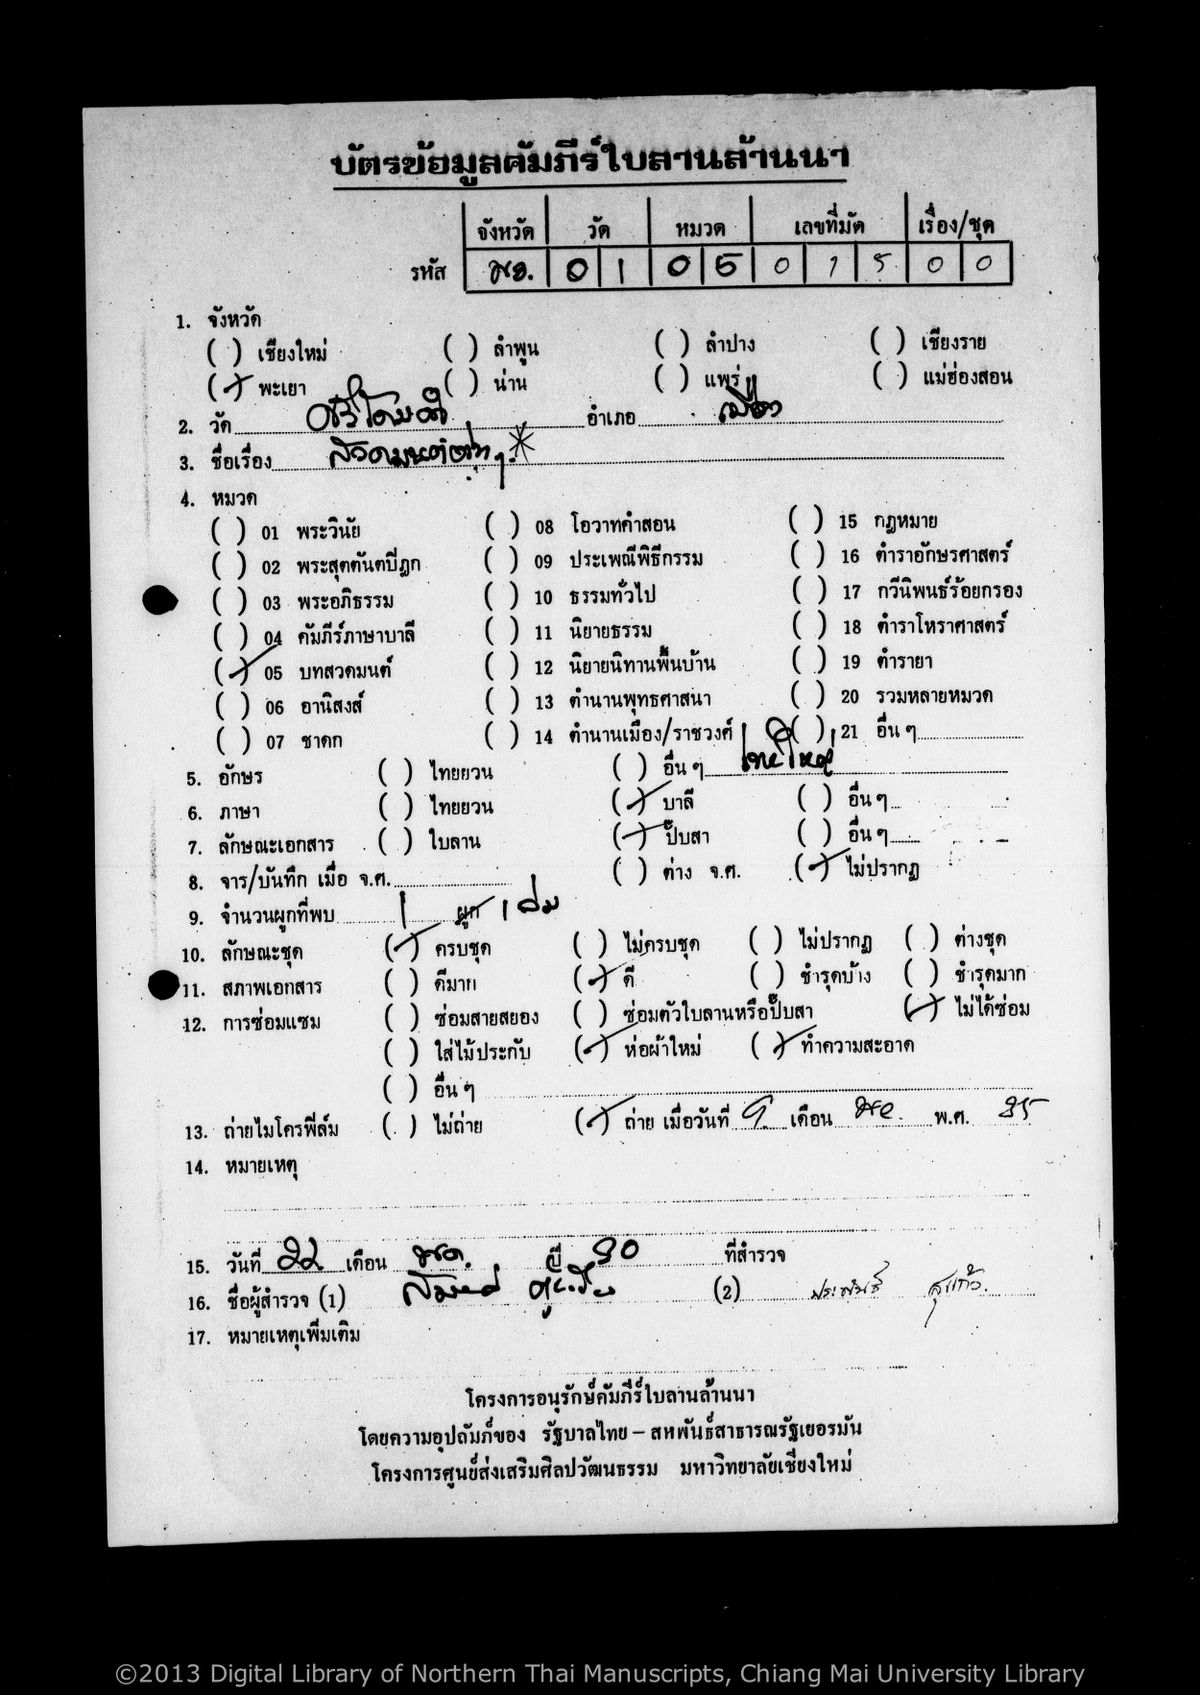 บัตรข้อมูลคัมภีร์ใบลานล้านนา
จังหวัด วัด หมวด เลขที่มัด เรื่อง/ชุด
รหัส พย. 0 1 0 5 0 1 5 0 0
1. จังหวัด
( ) เชียงใหม่ ( ) ลำพูน ( ) ลำปาง ( ) เชียงราย
(✓) พะเยา ( ) น่าน ( ) แพร่ ( ) แม่ฮ่องสอน
2. วัด ศรีโคมคำ อำเภอ เมือง
3. ชื่อเรื่อง สวดมนต์ต่าง ๆ *
4. หมวด
( ) 01 พระวินัย ( ) 08 โอวาทคำสอน ( ) 15 กฎหมาย
( ) 02 พระสุตตันตปิฎก ( ) 09 ประเพณีพิธีกรรม ( ) 16 ตำราอักษรศาสตร์
( ) 03 พระอภิธรรม ( ) 10 ธรรมทั่วไป ( ) 17 กวีนิพนธ์ร้อยกรอง
( ) 04 คัมภีร์ภาษาบาลี ( ) 11 นิยายธรรม ( ) 18 ตำราโหราศาสตร์
(✓) 05 บทสวดมนต์ ( ) 12 นิยายนิทานพื้นบ้าน ( ) 19 ตำรายา
( ) 06 อานิสงส์ ( ) 13 ตำนานพุทธศาสนา ( ) 20 รวมหลายหมวด
( ) 07 ชาดก ( ) 14 ตำนานเมือง/ราชวงศ์ ( ) 21 อื่น ๆ
5. อักษร ( ) ไทยยวน ( ) อื่น ๆ ไทใหญ่
6. ภาษา ( ) ไทยยวน (✓) บาลี ( ) อื่น ๆ
7. ลักษณะเอกสาร ( ) ใบลาน (✓) ปั๊บสา ( ) อื่น ๆ
8. จาร/บันทึก เมื่อ จ.ศ. ( ) ต่าง จ.ศ. (✓) ไม่ปรากฏ
9. จำนวนผูกที่พบ 1 ผูก 1 เล่ม
10. ลักษณะชุด (✓) ครบชุด ( ) ไม่ครบชุด ( ) ไม่ปรากฏ ( ) ต่างชุด
11. สภาพเอกสาร ( ) ดีมาก (✓) ดี ( ) ชำรุดบ้าง ( ) ชำรุดมาก
12. การซ่อมแซม ( ) ซ่อมสายสยอง ( ) ซ่อมตัวใบลานหรือปั๊บสา (✓) ไม่ได้ซ่อม
( ) ใส่ไม้ประกับ (✓) ห่อผ้าใหม่ (✓) ทำความสะอาด
( ) อื่น ๆ
13. ถ่ายไมโครฟิล์ม ( ) ไม่ถ่าย (✓) ถ่าย เมื่อวันที่ 9 เดือน พย. พ.ศ. 35
14. หมายเหตุ
15. วันที่ 22 เดือน พค. ปี 30 ที่สำรวจ
16. ชื่อผู้สำรวจ (1) (2) ประพันธ์ สุขแก้ว.
17. หมายเหตุเพิ่มเติม
โครงการอนุรักษ์คัมภีร์ใบลานล้านนา
โดยความอุปถัมภ์ของ รัฐบาลไทย – สหพันธ์สาธารณรัฐเยอรมัน
โครงการศูนย์ส่งเสริมศิลปวัฒนธรรม มหาวิทยาลัยเชียงใหม่
©2013 Digital Library of Northern Thai Manuscripts, Chiang Mai University Library